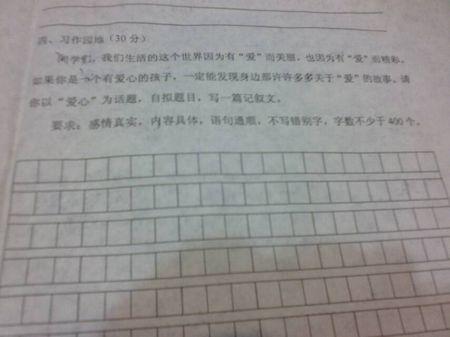 四、习作园地（30分）
同学们，我们生活的这个世界因为有“爱”而美丽，也因为有“爱”而精彩。
如果你是一个有爱心的孩子，一定能发现身边那许许多多关于“爱”的故事。请
你以“爱心”为话题，自拟题目，写一篇记叙文。
要求：感情真实，内容具体，语句通顺，不写错别字，字数不少于400个。